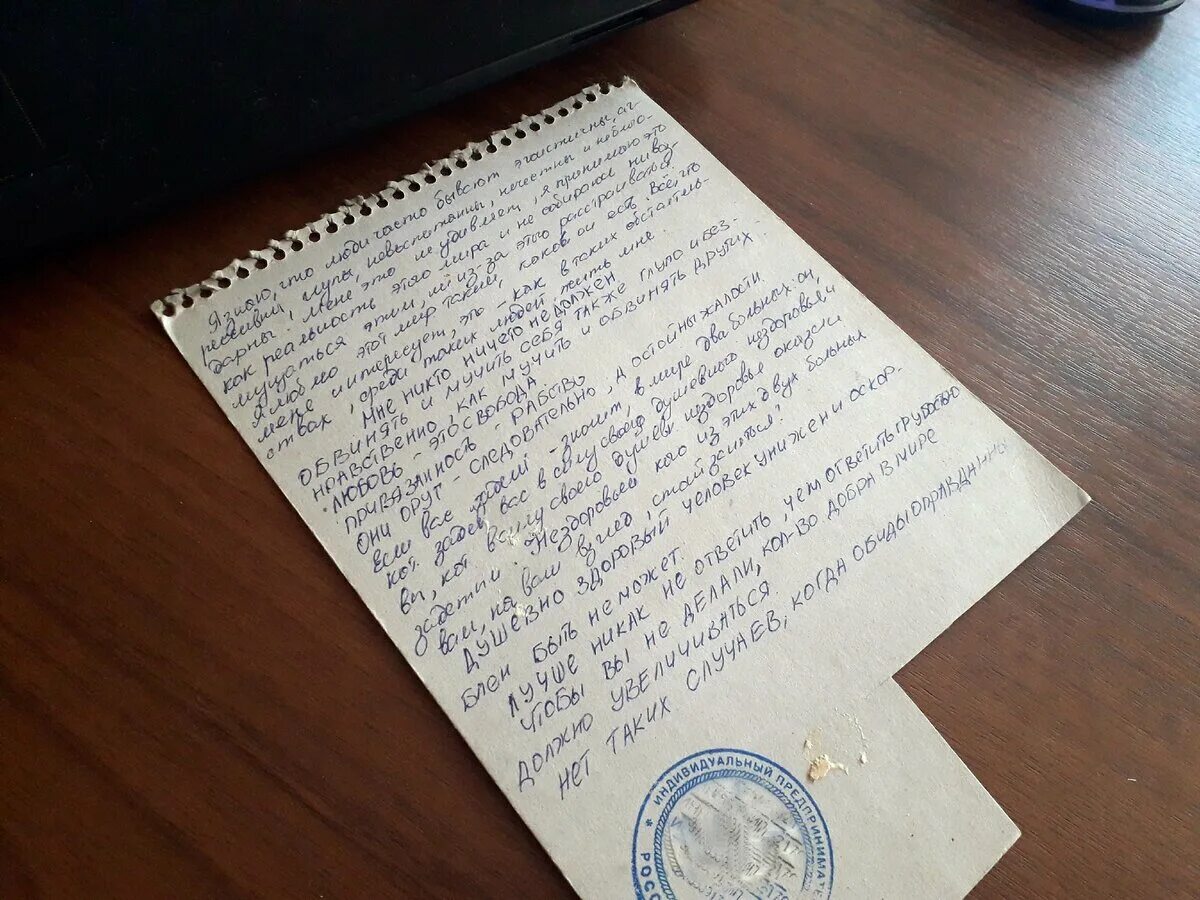 Я знаю, что люди часто бывают эгоистичны, аг-
рессивны, глупы, невоспитанны, нечестны и неблаго-
дарны. Меня это не удивляет, я принимаю это
как реальность этого мира и не собираюсь ни воз-
мущаться этим, ни из-за этого расстраиваться.
Я люблю этот мир таким, каков он есть. Всё, что
меня интересует, это - как в таких обстоятель-
ствах, среди таких людей жить мне.
Мне никто ничего не должен.
ОБВИНЯТЬ И МУЧИТЬ СЕБЯ ТАКЖЕ ГЛУПО И БЕЗ-
НРАВСТВЕННО, КАК МУЧИТЬ И ОБВИНЯТЬ ДРУГИХ.
• ЛЮБОВЬ - ЭТО СВОБОДА
ПРИВЯЗАННОСТЬ - РАБСТВО
ОНИ ОРУТ - СЛЕДОВАТЕЛЬНО, ДОСТОЙНЫ ЖАЛОСТИ
Если вас задели - значит, в мире два больных: он,
кот. задел вас в силу своего душевного нездоровья, и
вы, кот. в силу своего душевн. нездоровья оказался
задетым. Нездоровьем кого из этих двух больных
вам, на ваш взгляд, стоит заняться?
ДУШЕВНО ЗДОРОВЫЙ ЧЕЛОВЕК УНИЖЕН И ОСКОР-
БЛЕН БЫТЬ НЕ МОЖЕТ.
ЛУЧШЕ НИКАК НЕ ОТВЕТИТЬ, ЧЕМ ОТВЕТИТЬ ГРУБОСТЬЮ
ЧТОБЫ ВЫ НЕ ДЕЛАЛИ, КОЛ-ВО ДОБРА В МИРЕ
ДОЛЖНО УВЕЛИЧИВАТЬСЯ.
НЕТ ТАКИХ СЛУЧАЕВ, КОГДА ОБИДЫ ОПРАВДАННЫ
* ИНДИВИДУАЛЬНЫЙ ПРЕДПРИНИМАТЕ
РОСС